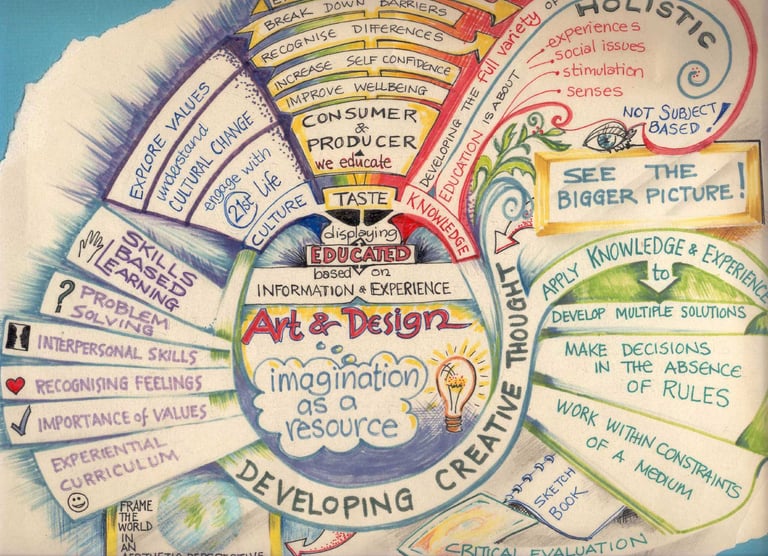 BREAK DOWN BARRIERS
RECOGNISE DIFFERENCES
INCREASE SELF CONFIDENCE
IMPROVE WELLBEING
CONSUMER
&
PRODUCER
we educate
TASTE
displaying
EDUCATED
based on
INFORMATION & EXPERIENCE
Art & Design
imagination
as a
resource
DEVELOPING CREATIVE THOUGHT
EXPLORE VALUES
understand
CULTURAL CHANGE
engage with
21st life
CULTURE
SKILLS
BASED
LEARNING
?
PROBLEM
SOLVING
INTERPERSONAL SKILLS
RECOGNISING FEELINGS
IMPORTANCE of VALUES
EXPERIENTIAL
CURRICULUM
KNOWLEDGE
DEVELOPING THE full variety OF
HOLISTIC
EDUCATION IS ABOUT
experiences
social issues
stimulation
senses
NOT SUBJECT
BASED!
SEE THE
BIGGER PICTURE!
APPLY KNOWLEDGE & EXPERIENCE
to
DEVELOP MULTIPLE SOLUTIONS
MAKE DECISIONS
IN THE ABSENCE
OF RULES
WORK WITHIN CONSTRAINTS
OF A MEDIUM
SKETCH
BOOK
CRITICAL EVALUATION
FRAME
THE
WORLD
IN
AN
AESTHETIC PERSPECTIVE